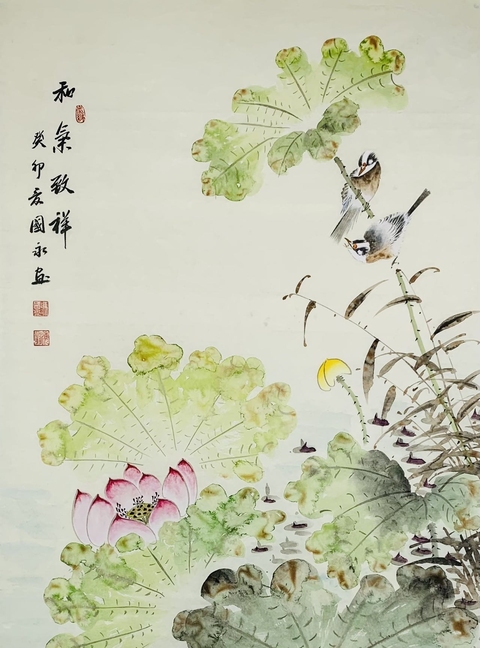 和氣致祥
癸卯夏國永画